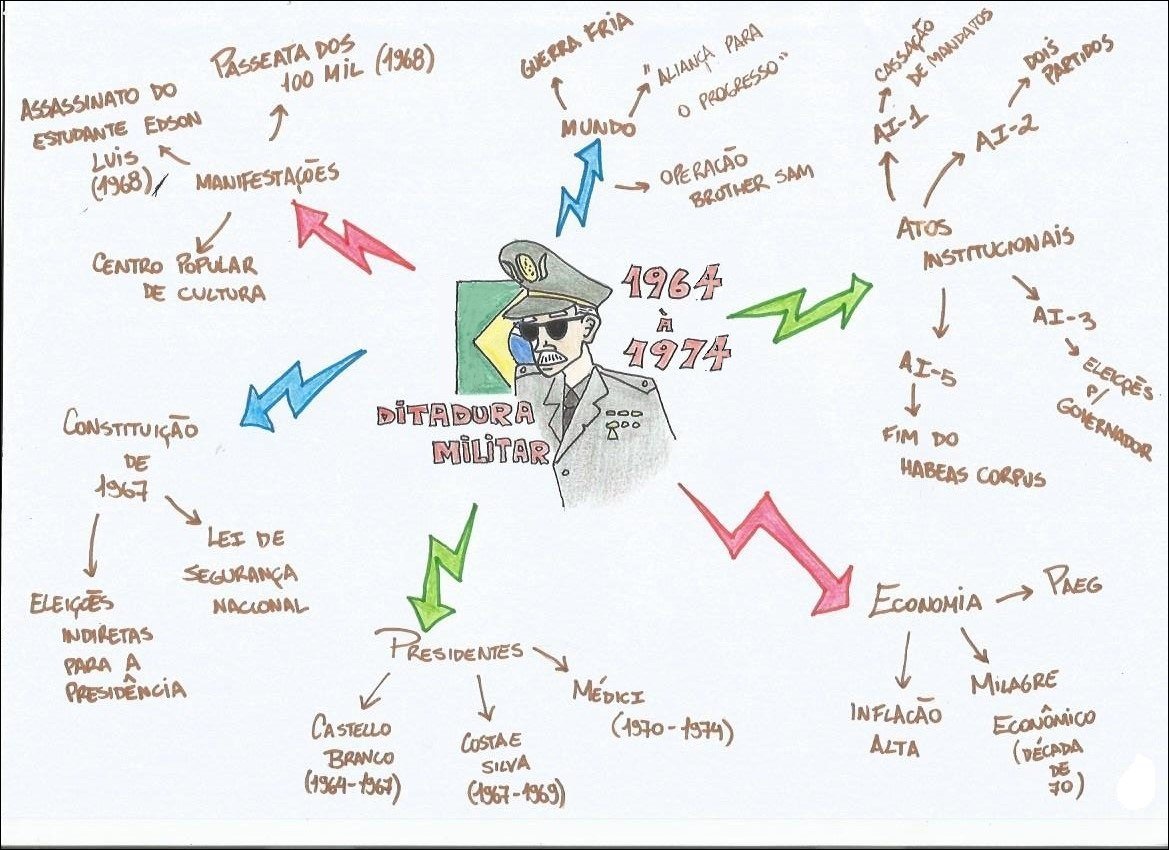 DITADURA
MILITAR
1964
À
1974
MANIFESTAÇÕES
ASSASSINATO DO
ESTUDANTE EDSON
LUIS
(1968)
PASSEATA DOS
100 MIL (1968)
CENTRO POPULAR
DE CULTURA
MUNDO
GUERRA FRIA
"ALIANÇA PARA
O PROGRESSO"
OPERAÇÃO
BROTHER SAM
ATOS
INSTITUCIONAIS
AI-1
CASSAÇÃO
DE MANDATOS
AI-2
DOIS
PARTIDOS
AI-3
ELEIÇÕES
P/
GOVERNADOR
AI-5
FIM DO
HABEAS CORPUS
CONSTITUIÇÃO
DE
1967
ELEIÇÕES
INDIRETAS
PARA A
PRESIDÊNCIA
LEI DE
SEGURANÇA
NACIONAL
PRESIDENTES
CASTELLO
BRANCO
(1964-1967)
COSTA E
SILVA
(1967-1969)
MÉDICI
(1970-1974)
ECONOMIA
PAEG
INFLAÇÃO
ALTA
MILAGRE
ECONÔMICO
(DÉCADA
DE
70)